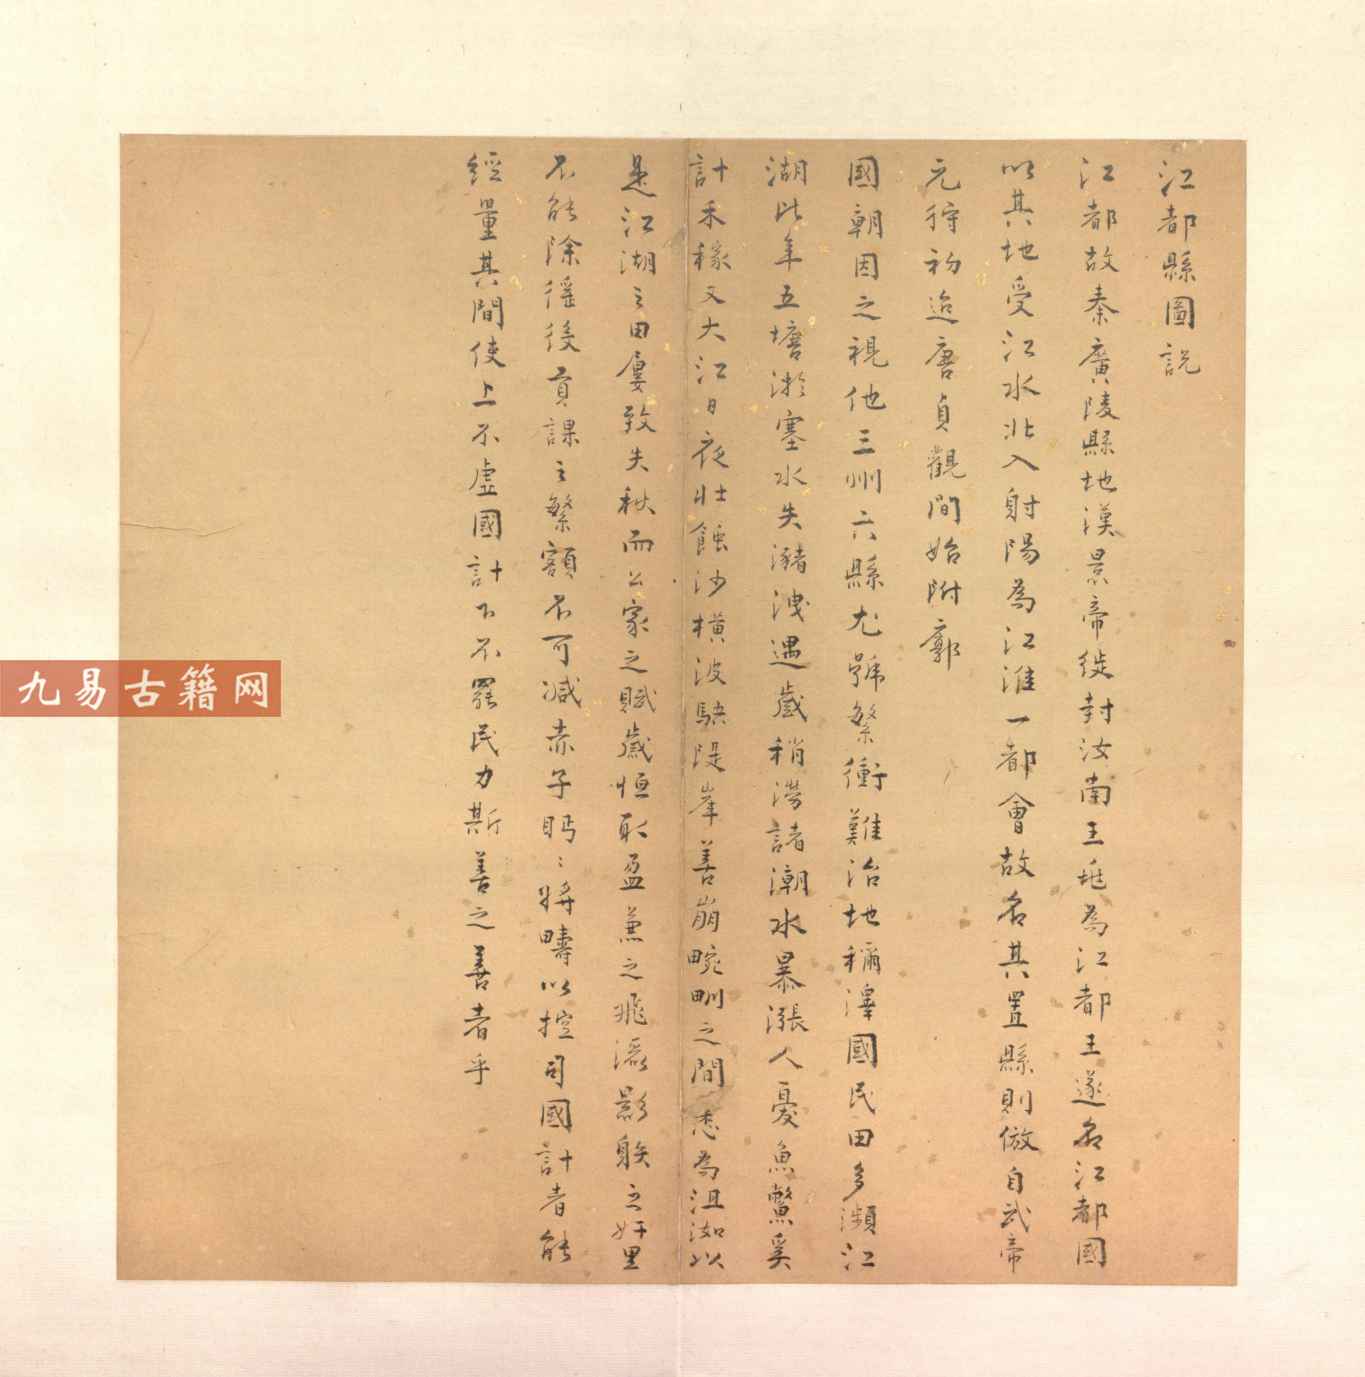 江都縣圖説
江都故秦廣陵縣地漢景帝徙封汝南王非為江都王遂名江都國
以其地受江水北入射陽為江淮一都會故名其置縣則倣自武帝
元狩初迨唐貞觀間始附郭
國朝因之視他三州六縣尤號繁衝難治地稱澤國民田多瀕江
湖比年五塘淤塞水失瀦洩遇歲稍澇諸潮水暴漲人憂魚鱉奚
計禾稼又大江日夜壯蝕沙橫波駃隄岸善崩畹甽之間悉為沮洳以
是江湖之田屢致失秋而公家之賦歲恒取盈兼之飛灑影躲之奸里
不能除徭役貢課之繁額不可减赤子眄眄將疇以控司國計者能
經量其間使上不虛國計下不罷民力斯善之善者乎
九易古籍网